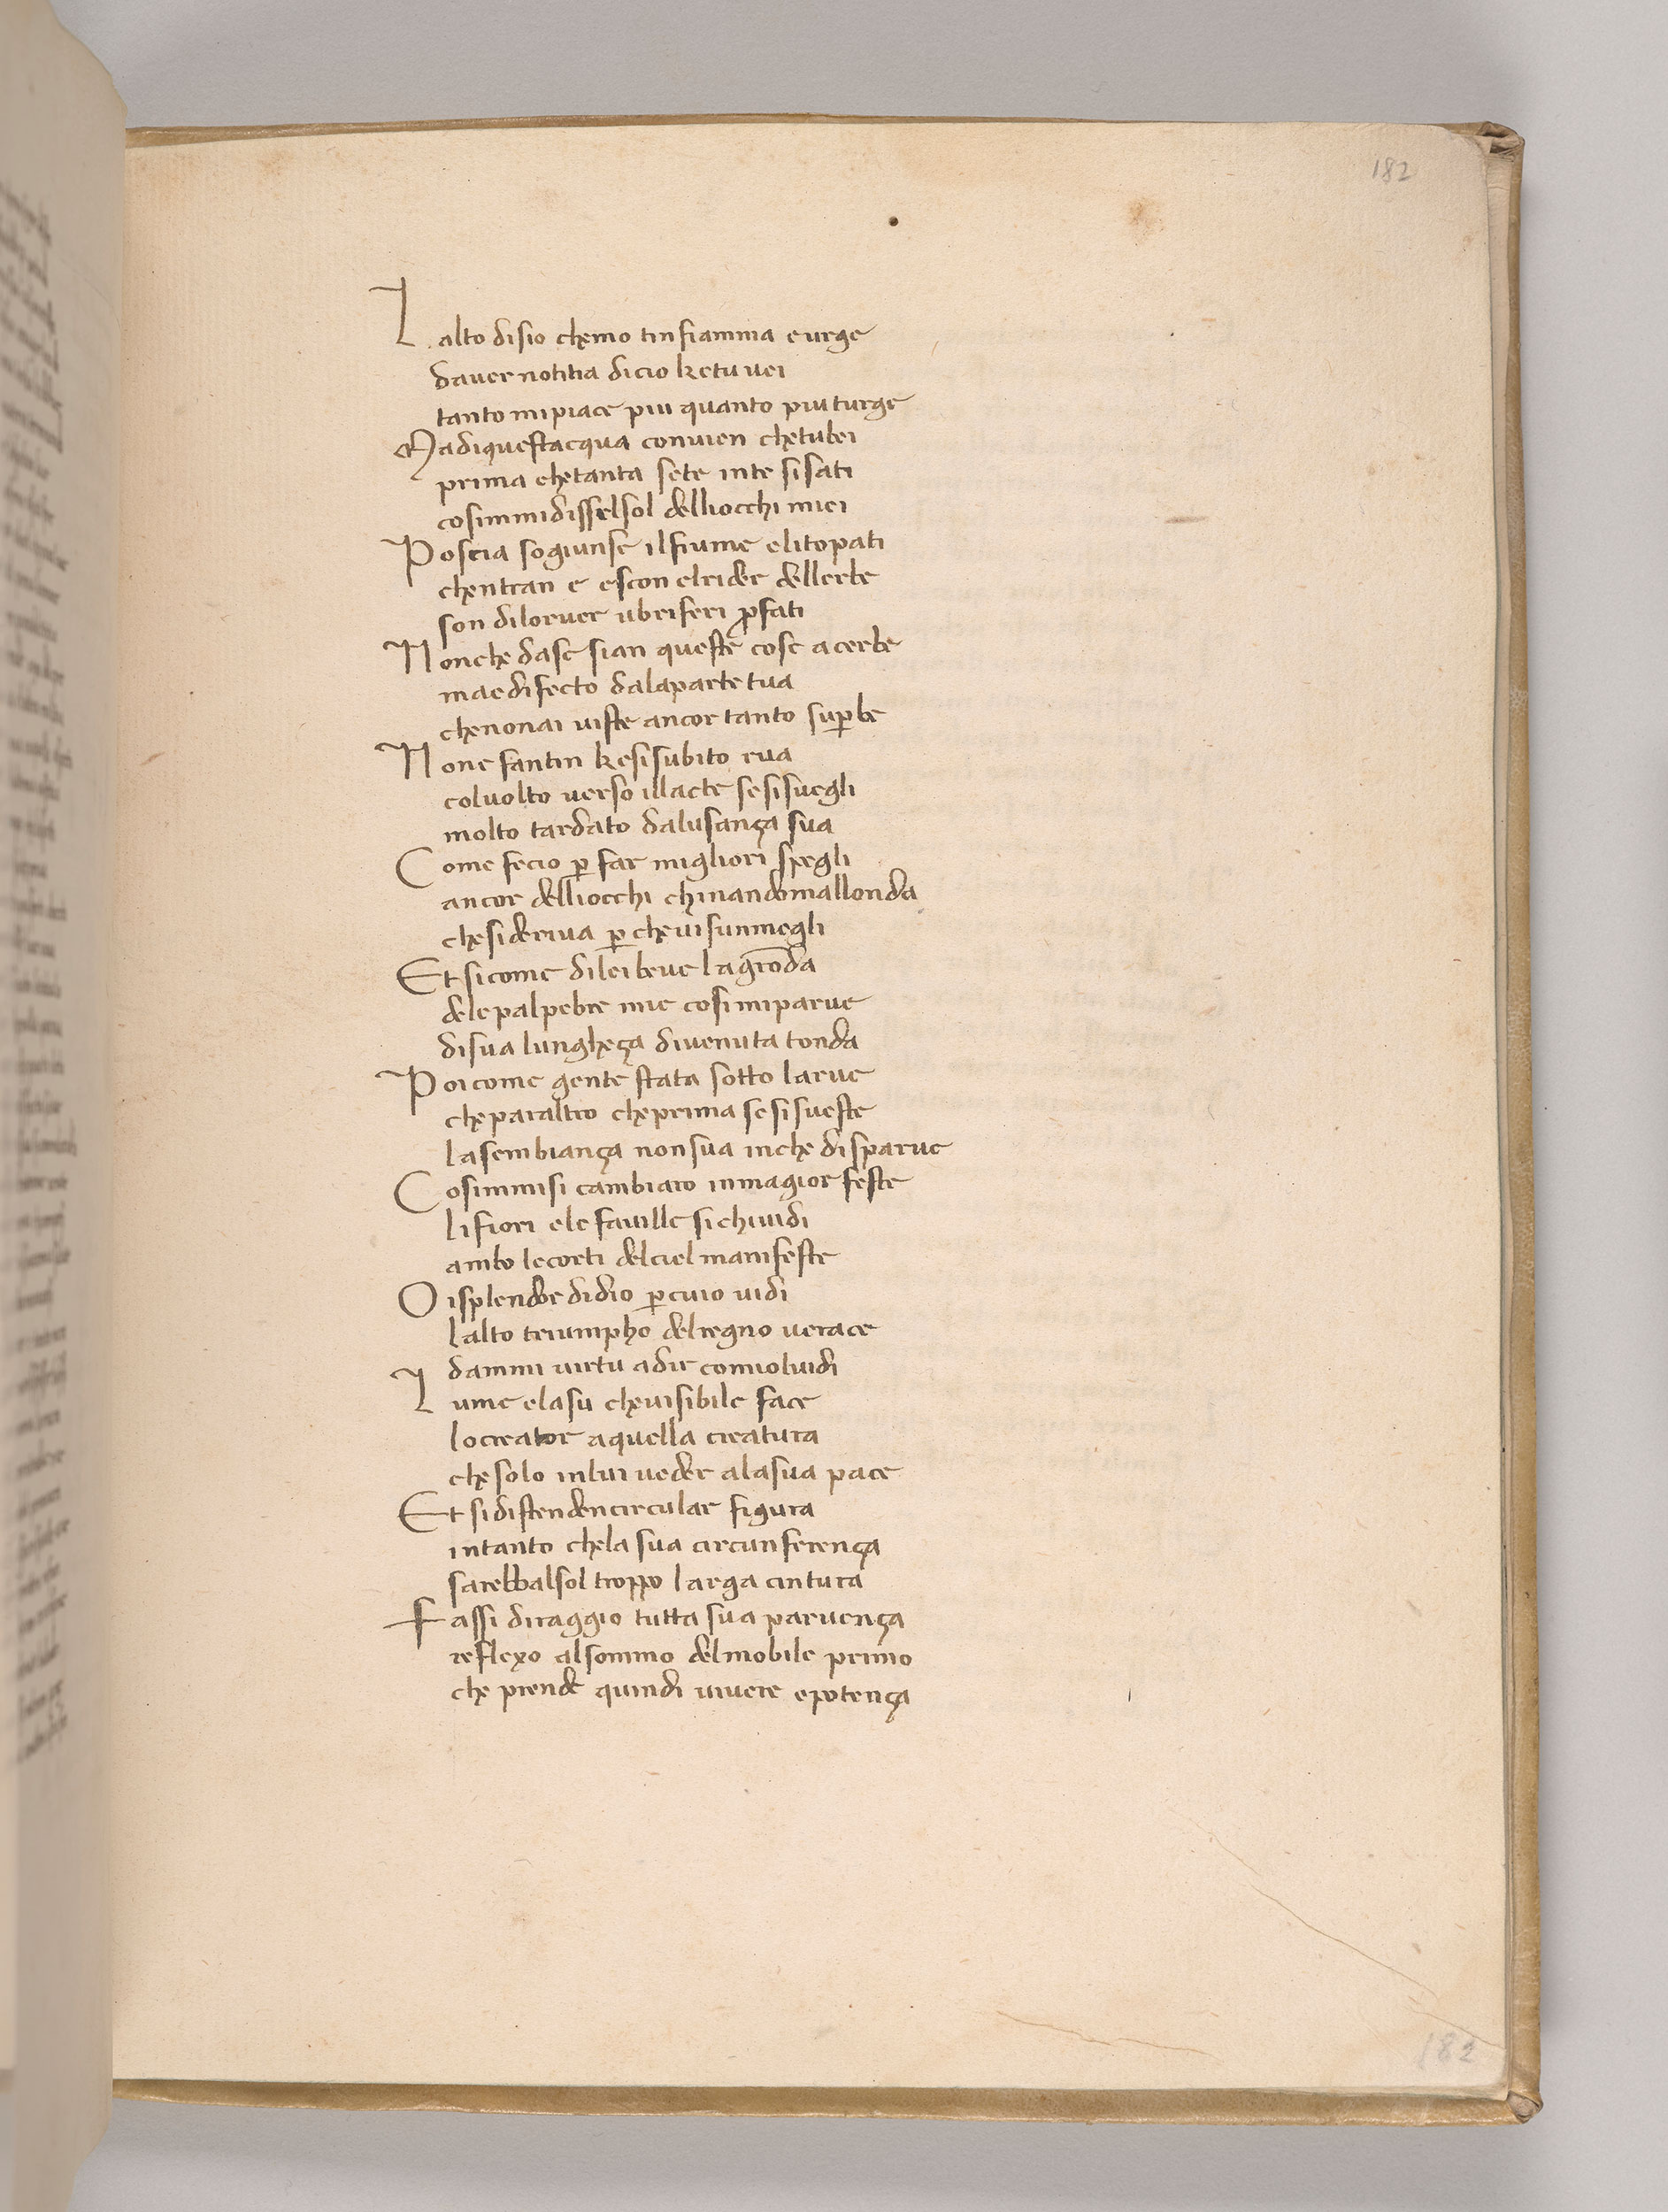 182
Lalto disio chemo tinfiamma e urge
daver notitia dicio ketu vei
tanto mi piace piu quanto piu turge
Ma diquestacqua convien chetubei
prima chetanta sete inte sisati
cosimmidisselsol delliocchi miei
Poscia sogiunse ilfiume elitopati
chentran e escon elrider dellerbe
son diloruer ubriferi p̱fati
Nonche dase sian queste cose acerbe
mae difecto dalaparte tua
chenonai viste ancor tanto sup̱be
None fantin kesisubito rua
colvolto verso illacte sesisuegli
molto tardato dalusança sua
Come fecio p̱ far migliori spegli
ancor delliocchi chinandomallonda
chesideriua p̱ chevi sunmegli
Et sicome dilei beve lagrōda
dele palpebre mie cosi miparve
disua lungheça divenuta tonda
Poi come gente stata sotto larve
cheparaltro cheprima sesi sveste
lasembiança nonsua inche disparve
Cosimmisi cambiaro inmagior feste
lifiori ele faville sichiuidi
ambo lecorti delciel manifeste
O isplendor didio p̱cuio vidi
lalto triumpho delregno verace
dammi virtu adir comioluidi
Lume elasu chevisibile face
locreator aquella creatura
chesolo inlui veder alasua pace
Et sidistendencircular figura
intanto chela sua circunferença
sarebbalsol troppo larga cintura
Fassi diraggio tutta sua parvença
reflexo alsommo delmobile primo
che prende quindi vivere epotença
182